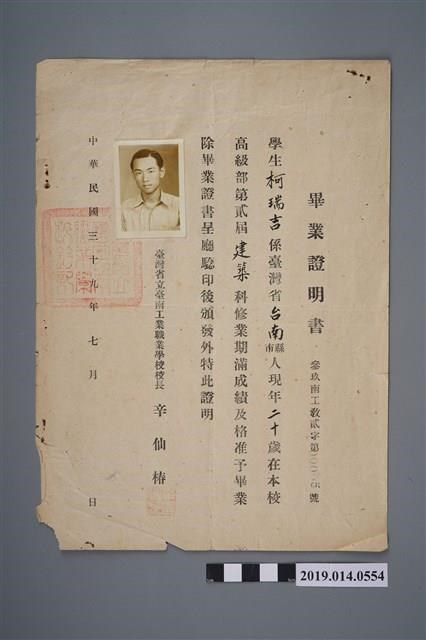 畢業證明書
參玖南工教貳字第　號
學生柯瑞吉係臺灣省台南縣市人現年二十歲在本校
高級部第貳屆建築科修業期滿成績及格准予畢業
除畢業證書呈廳驗印後頒發外特此證明
臺灣省立臺南工業職業學校校長　辛仙椿
中華民國三十九年七月　日
2019.014.0554